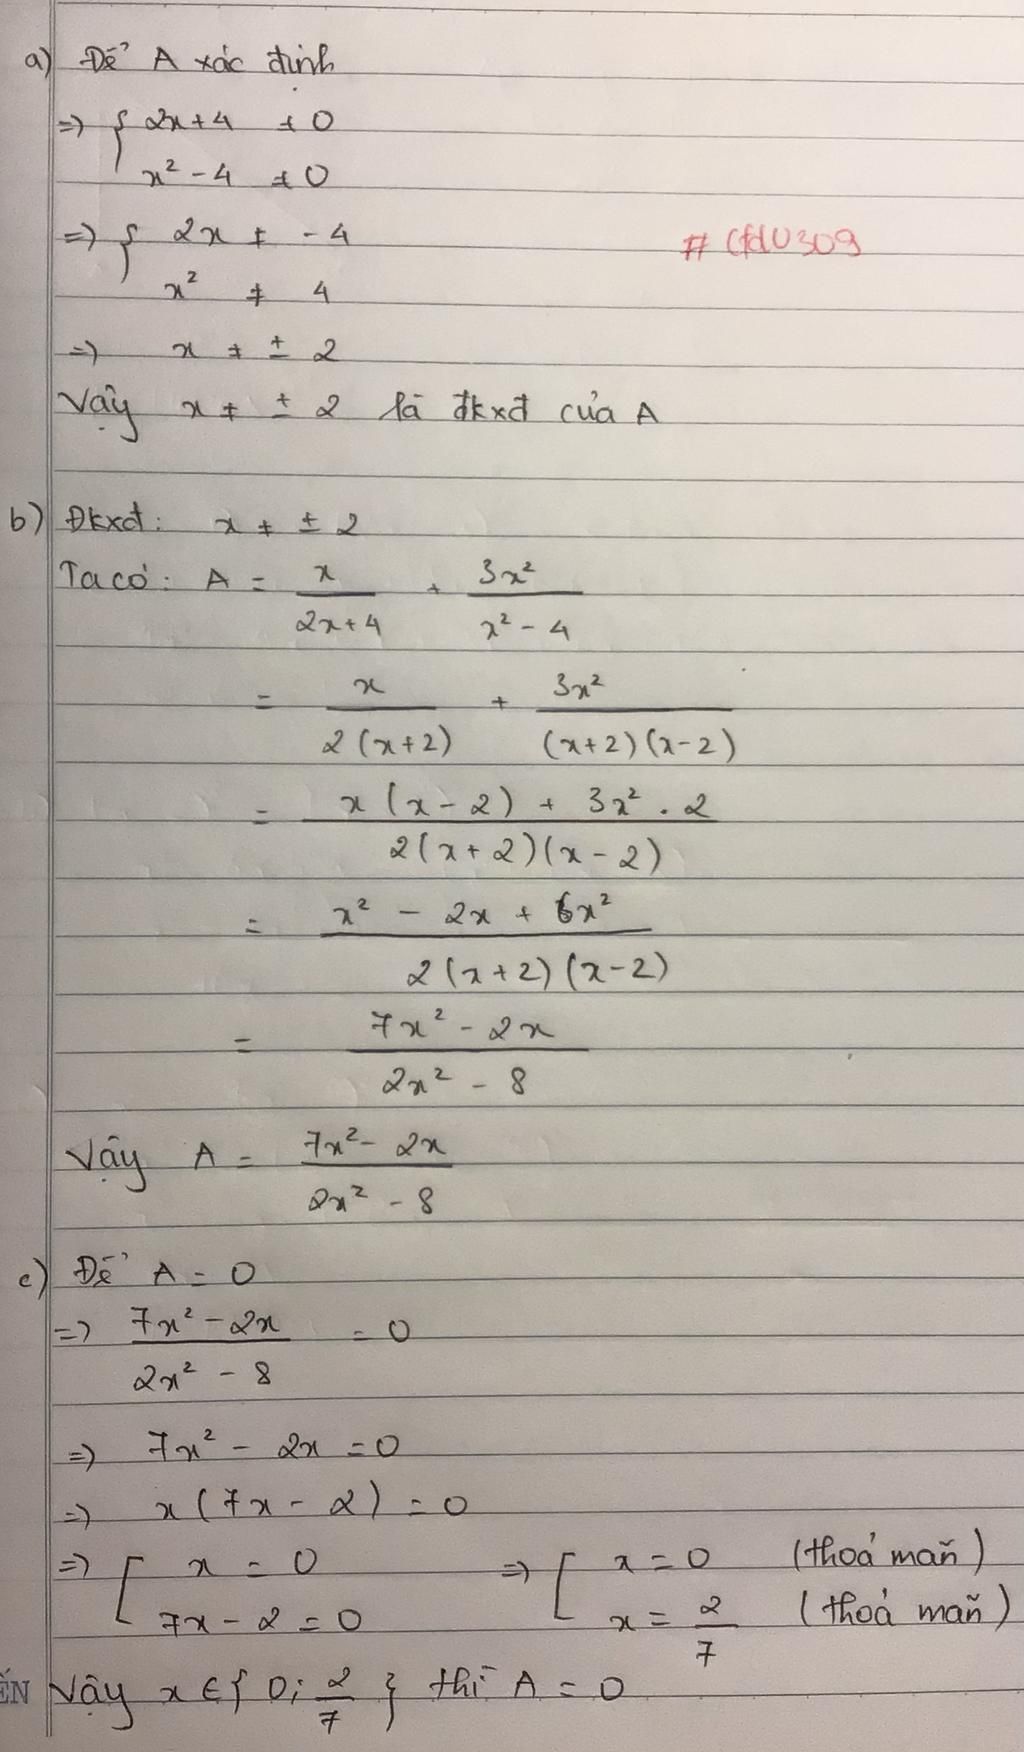 a) Để A xác định
=> { 2x+4 ≠ 0
x² - 4 ≠ 0
=> { 2x ≠ -4
x² ≠ 4
# Cfdl0309
=> x ≠ ± 2
Vậy x ≠ ± 2 là đkxđ của A
b) Đkxđ: x ≠ ± 2
Ta có: A = x/(2x+4) + 3x²/(x² - 4)
= x/(2(x+2)) + 3x²/((x+2)(x-2))
= (x(x-2) + 3x² . 2)/(2(x+2)(x-2))
= (x² - 2x + 6x²)/(2(x+2)(x-2))
= (7x² - 2x)/(2x² - 8)
Vậy A = (7x² - 2x)/(2x² - 8)
c) Để A = 0
=> (7x² - 2x)/(2x² - 8) = 0
=> 7x² - 2x = 0
=> x(7x - 2) = 0
=> [ x = 0 => [ x = 0 (thoả mãn)
7x - 2 = 0 x = 2/7 (thoả mãn)
ẾN Vậy x ∈ { 0; 2/7 } thì A = 0